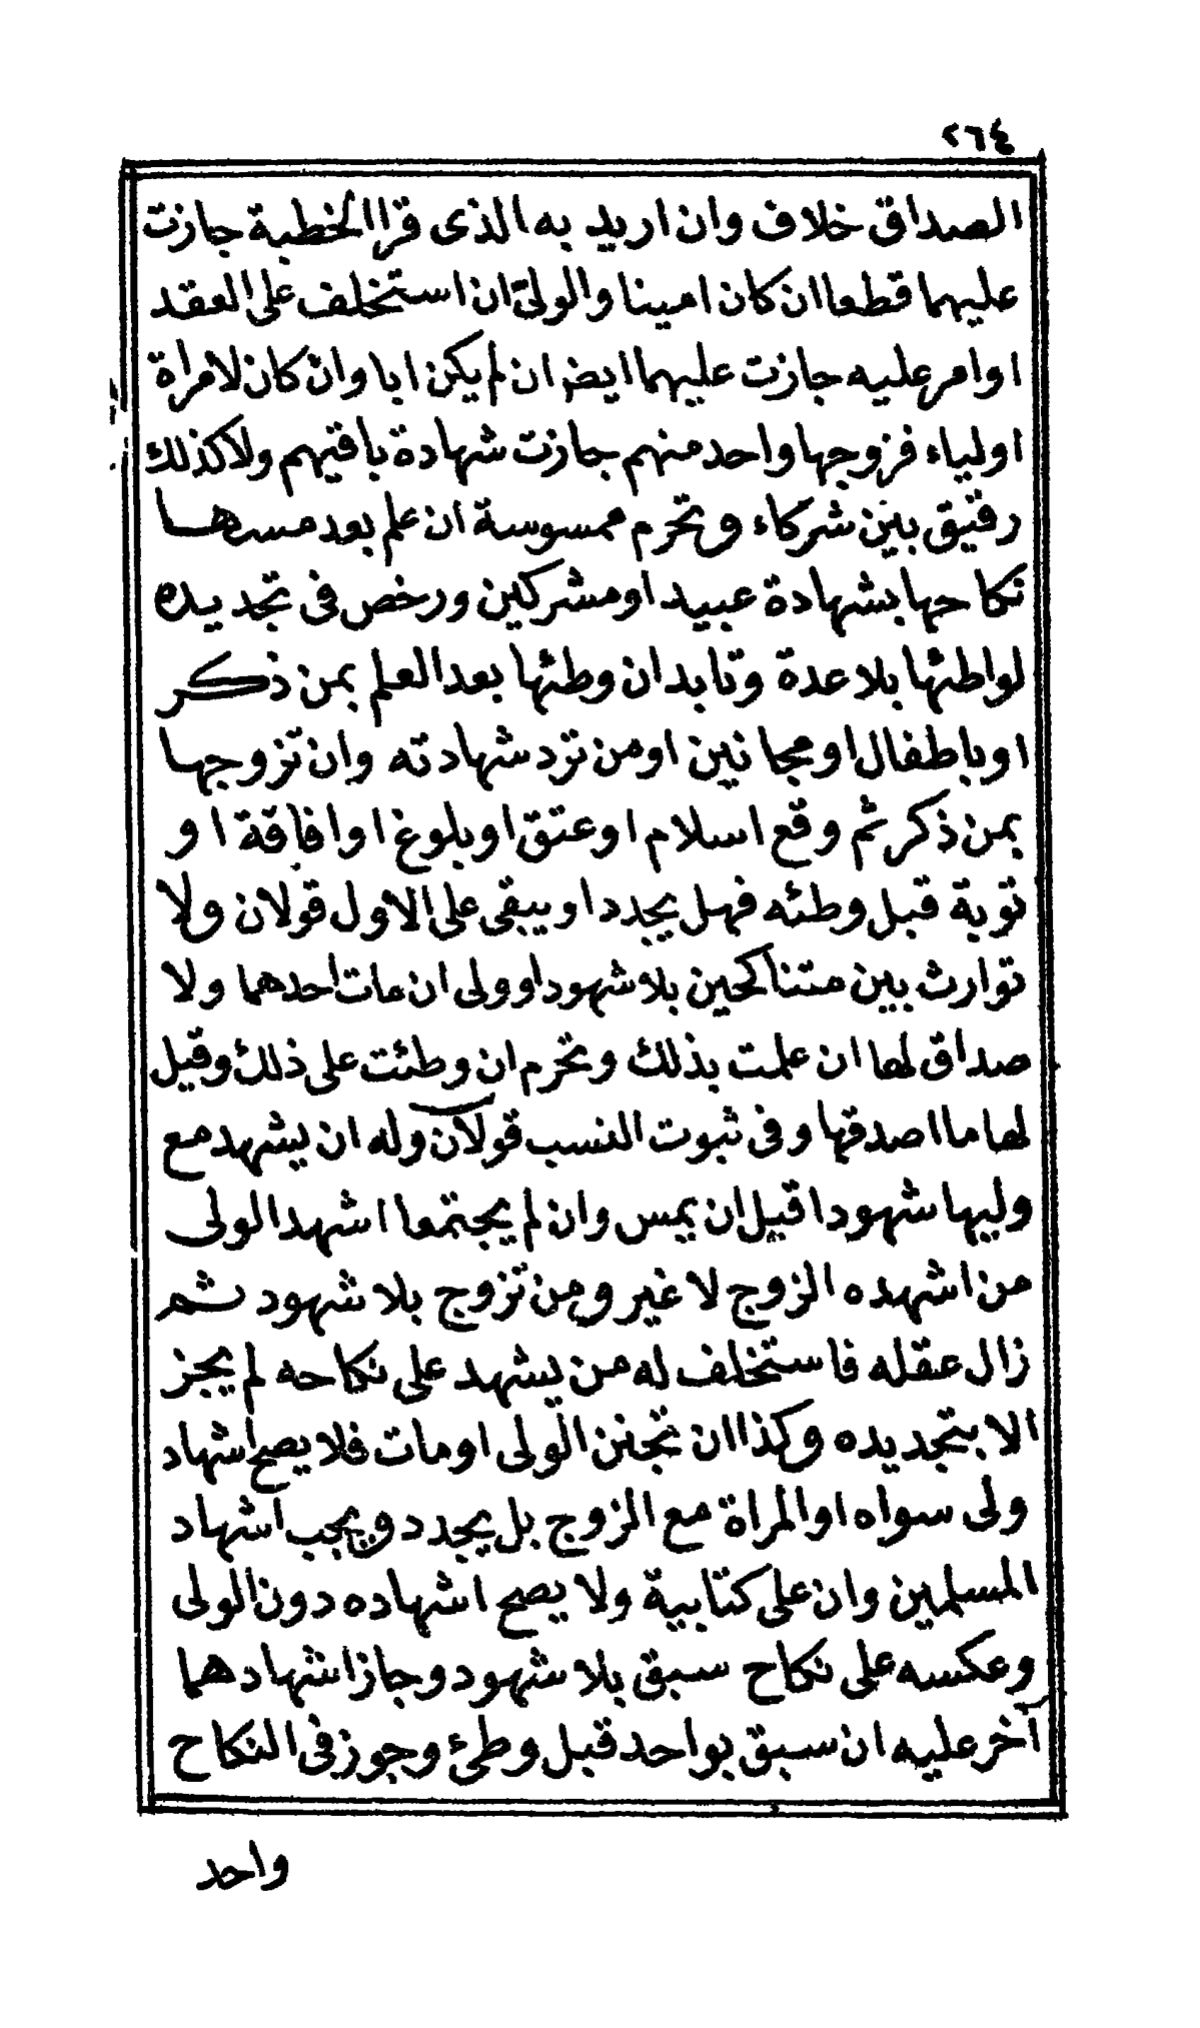 ٢٦٤
الصداق خلاف وان اريد به الذى قرا الخطبة جازت
عليهما قطعا ان كان امينا والولىّ ان استخلف على العقد
او امر عليه جازت عليهما ايض ان لم يكن ابا وان كان لامراة
اولياء فزوجها واحد منهم جازت شهادة باقيهم ولا كذلك
رقيق بين شركاء وتحرم ممسوسة ان علم بعد مسها
نكاحها بشهادة عبيد او مشركين ورخص فى تجديده
لواطئها بلا عدة وتابد ان وطئها بعد العلم بمن ذكر
او باطفال او مجانين او من ترد شهادته وان تزوجها
بمن ذكر ثم وقع اسلام او عتق او بلوغ او افاقة او
توبة قبل وطئه فهل يجدد او يبقى على الاول قولان ولا
توارث بين متناكحين بلا شهود او ولى ان مات احدهما ولا
صداق لها ان علمت بذلك وتحرم ان وطئت على ذلك وقيل
لها ما اصدقها وفى ثبوت النسب قولان وله ان يشهد مع
وليها شهودا قبل ان يمس وان لم يجتمعا اشهد الولى
من اشهده الزوج لا غير ومن تزوج بلا شهود ثم
زال عقله فاستخلف له من يشهد على نكاحه لم يجز
الا بتجديده وكذا ان تجنن الولى او مات فلا يصح اشهاد
ولى سواه او المراة مع الزوج بل يجدد ويجب اشهاد
المسلمين وان على كتابية ولا يصح اشهاده دون الولى
وعكسه على نكاح سبق بلا شهود وجاز اشهادهما
آخر عليه ان سبق بواحد قبل وطئ وجوز فى النكاح
واحد